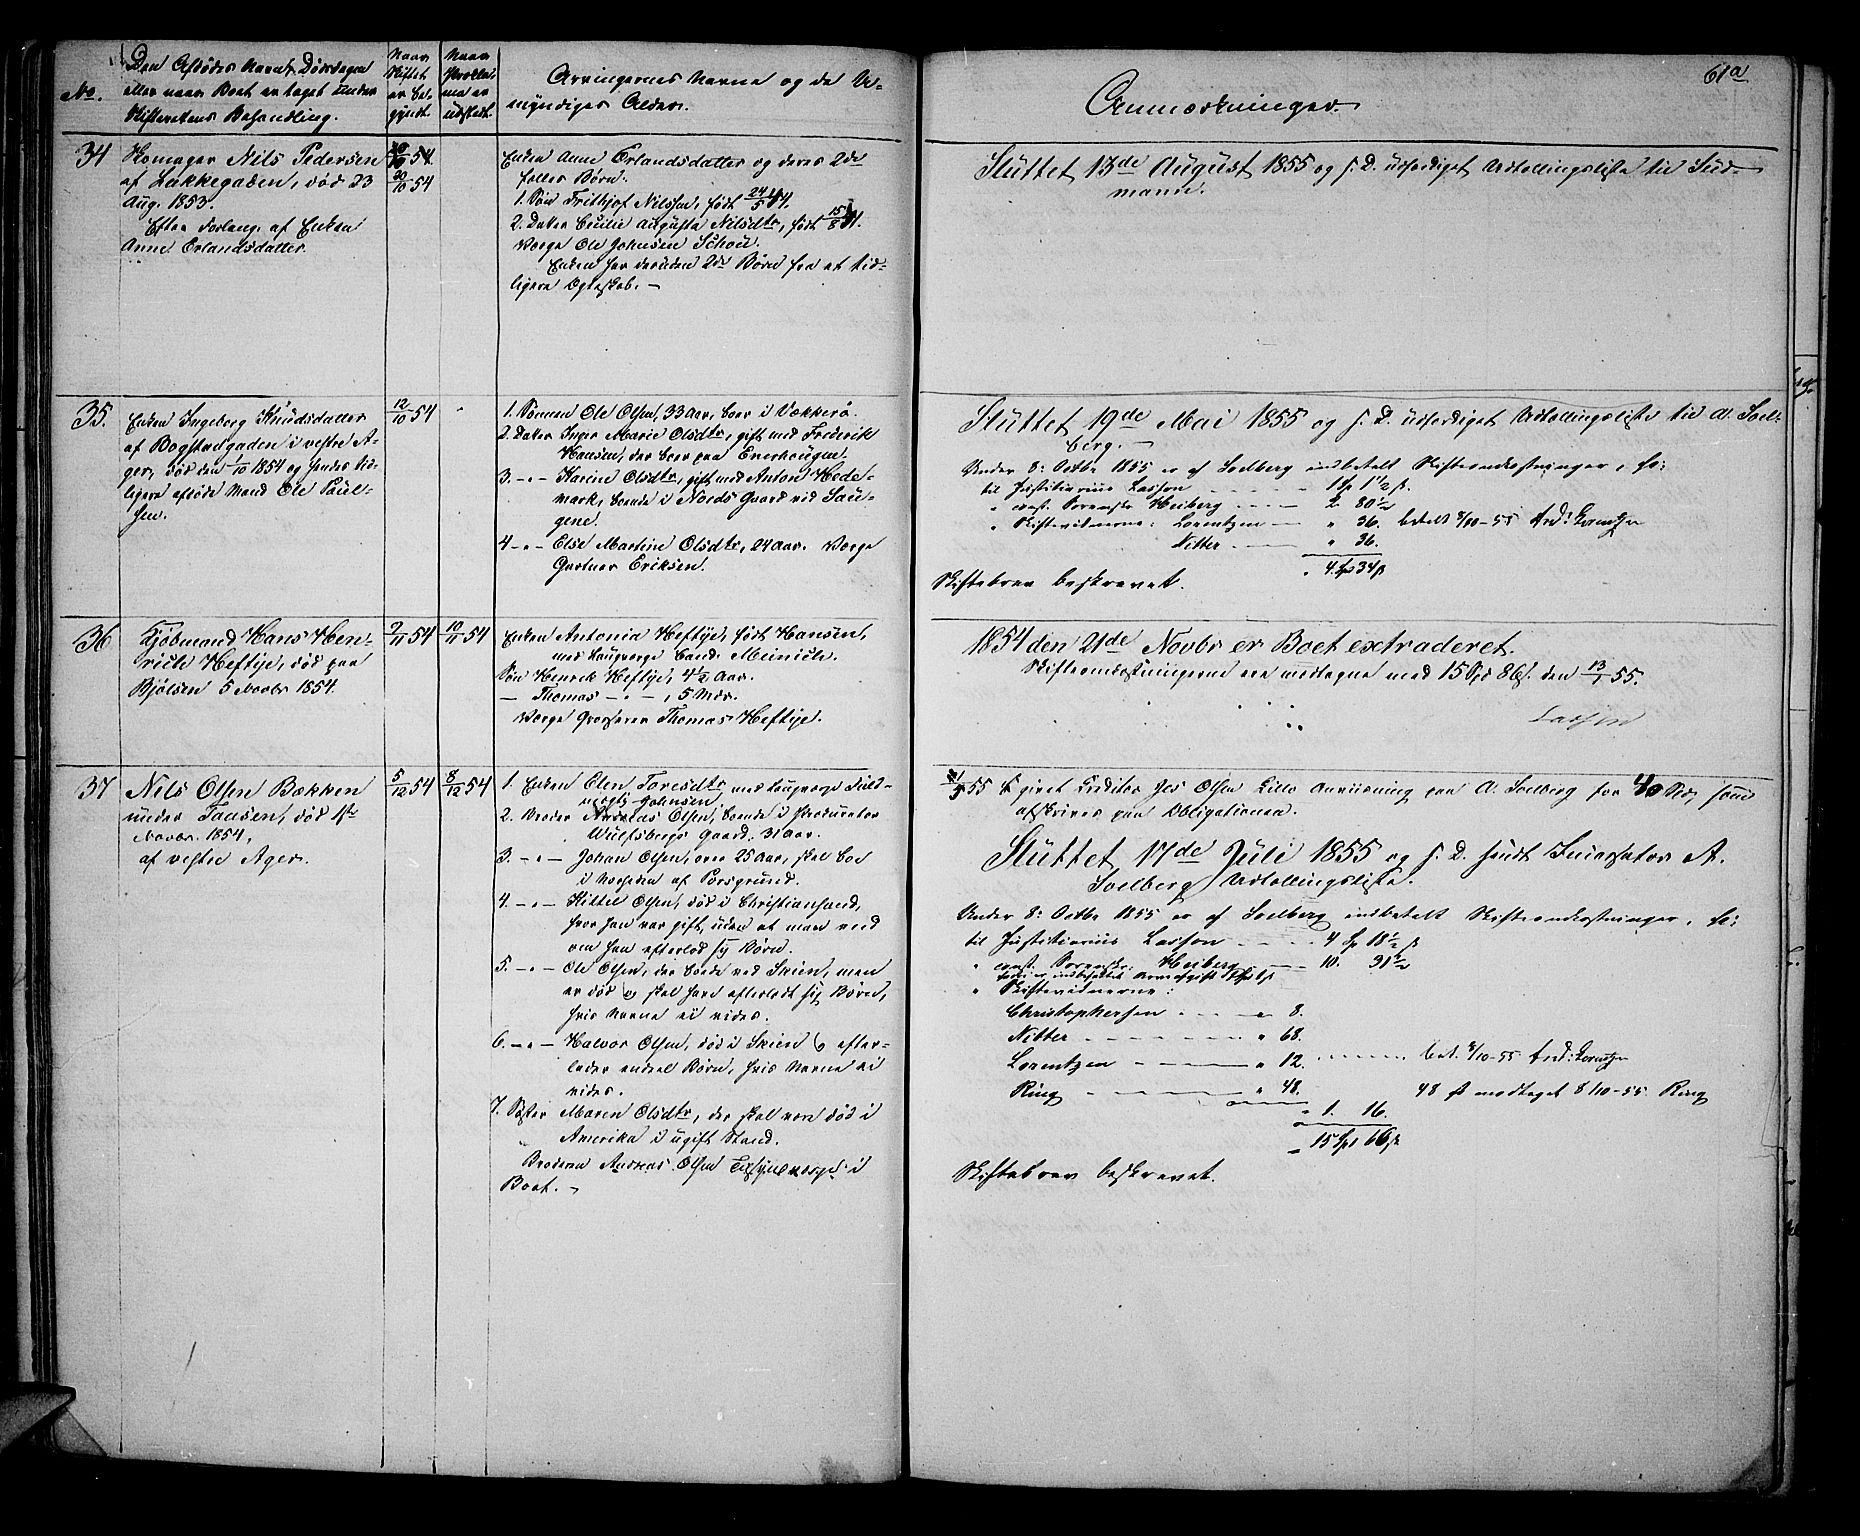 61a
No.
Den Afdødes Navn, Dødsdagen
eller naar Boet er taget under
Skifterettens Behandling.
Naar
Skiftet
er be-
gyndt.
Naar
Prokla-
ma er
udstedt.
Arvingernes Navne og de U-
myndiges Alder.
Anmærkninger.
34
Komager Nils Pedersen
af Lakkegaden, død 23
Aug. 1853.
Efter Forlang. af Enken
Anne Erlandsdatter.
30/10 54
Enken Anne Erlandsdatter og deres 2de
fælles Børn.
1. Søn Frithjof Nilssen, født 24/5 44.
2. Datter Cecilie Augusta Nilsdtr, født
Værge Ole Johnsen Schou.
Enken har desuden 2de Børn fra et tid-
ligere Ægteskab. —
Sluttet 13de August 1855 og s. D. udfærdiget Udtællingsliste til Sud-
mann.
35.
Enken Ingeborg Knudsdatter
af Bogstadgaden i vestre A-
ger, død den 1/10 1854 og hendes tid-
ligere afdøde Mand Ole Paul-
sen.
12/10 54
1. Sønnen Ole Olsen, 33 Aar, boer i Vækkerø.
2. Datter Inger Marie Olsdtr, gift med Frederik
Hansen, der boer paa Enerhougen.
3. -„- Karine Olsdtr, gift med Anton Hede-
mark, boende i Nords Gaard ved Sau-
gene.
4 -„- Else Martine Olsdtr, 24 Aar. Værge
Gartner Eriksen.
Sluttet 19de Mai 1855 og s. D. udfærdiget Udtællingsliste til A. Soel-
berg. —
Under 8: Octbr 1855 er af Soelberg indbetalt Skifteomkostninger, so:
til Justitiarius Lasson 1 Sp 1 1/2 ß.
„ const. Sorenskr Heiberg 2 80 1/2
„ Skiftevidnerne: Lorentzen — „ 36. betalt 8/10-55 And: Lorentzen
Nitter — „ 36.
4. Sp 34 ß
Skiftebrev beskrevet.
36
Kjøbmand Hans Hen-
rich Heftye, død paa
Bjølsen 5 Novbr 1854.
7/11 54
10/11 54
Enken Antonia Heftye, født Hansen,
med Laugværge Cand. Meinich.
Søn Henrik Heftye, 4 1/2 Aar.
— Thomas -„-, 5 Mdr.
Værge Grosserer Thomas Heftye.
1854 den 21de Novbr er Boet extraderet.
Skifteomkostningerne ere modtagne med 15 Spd 86 ß. den 13/1 55.
Lasson
37
Nils Olsen Bækken
under Taasen, død 1ste
Novbr. 1854,
af vestre Ager.
5/12 54
8/12 54
1. Enken Olen Toresdtr med Laugværge Fuld-
mægtig Johnsen,
2. Broder Andreas Olsen, boende i Procurator
Wulfsbergs Gaard, 31 Aar.
3. -„- Johan Olsen, over 25 Aar, skal boe
i Nærheden af Porsgrund.
4. -„- Kittel Olsen, død i Christiansand,
hvor han var gift, uden at man veed
om han efterlod sig Børn.
5. -„- Ole Olsen, der boede ved Skien, men
er død og skal have efterladt sig Børn,
hvis Navne ei vides.
6. -„- Halvor Olsen, død i Skien og efter-
lader endeel Børn, hvis Navne ei
vides.
7. Søster Maren Olsdtr, der skal være død i
Amerika i ugift Stand.
Broderen Andreas Olsen Tilsynsværge i
Boet. —
55 Er givet Creditor Jes Olsen Lillo Anviisning paa A. Soelberg for 40 Rd, som
afskrives paa Obligationen.
Sluttet 17de Juli 1855 og s. D. sendt Incassator A.
Soelberg Udtællingsliste.
Under 8: Octbr 1855 er af Soelberg indbetalt Skifteomkostninger, so:
til Justitiarius Lasson 4 Sp 18 1/2 ß
„ const. Sorenskr: Heiberg 10. 91 1/2
„ Skiftevidnerne:
Christophersen „ 8.
Nitter „ 68.
Lorentzen — „ 12. bet. 8/10-55 And: Lorentzen
Ring — „ 48. 48 ß modtaget 8/10-55 Ring
„ 1. 16.
15 Sp 66 ß
Skiftebrev beskrevet.